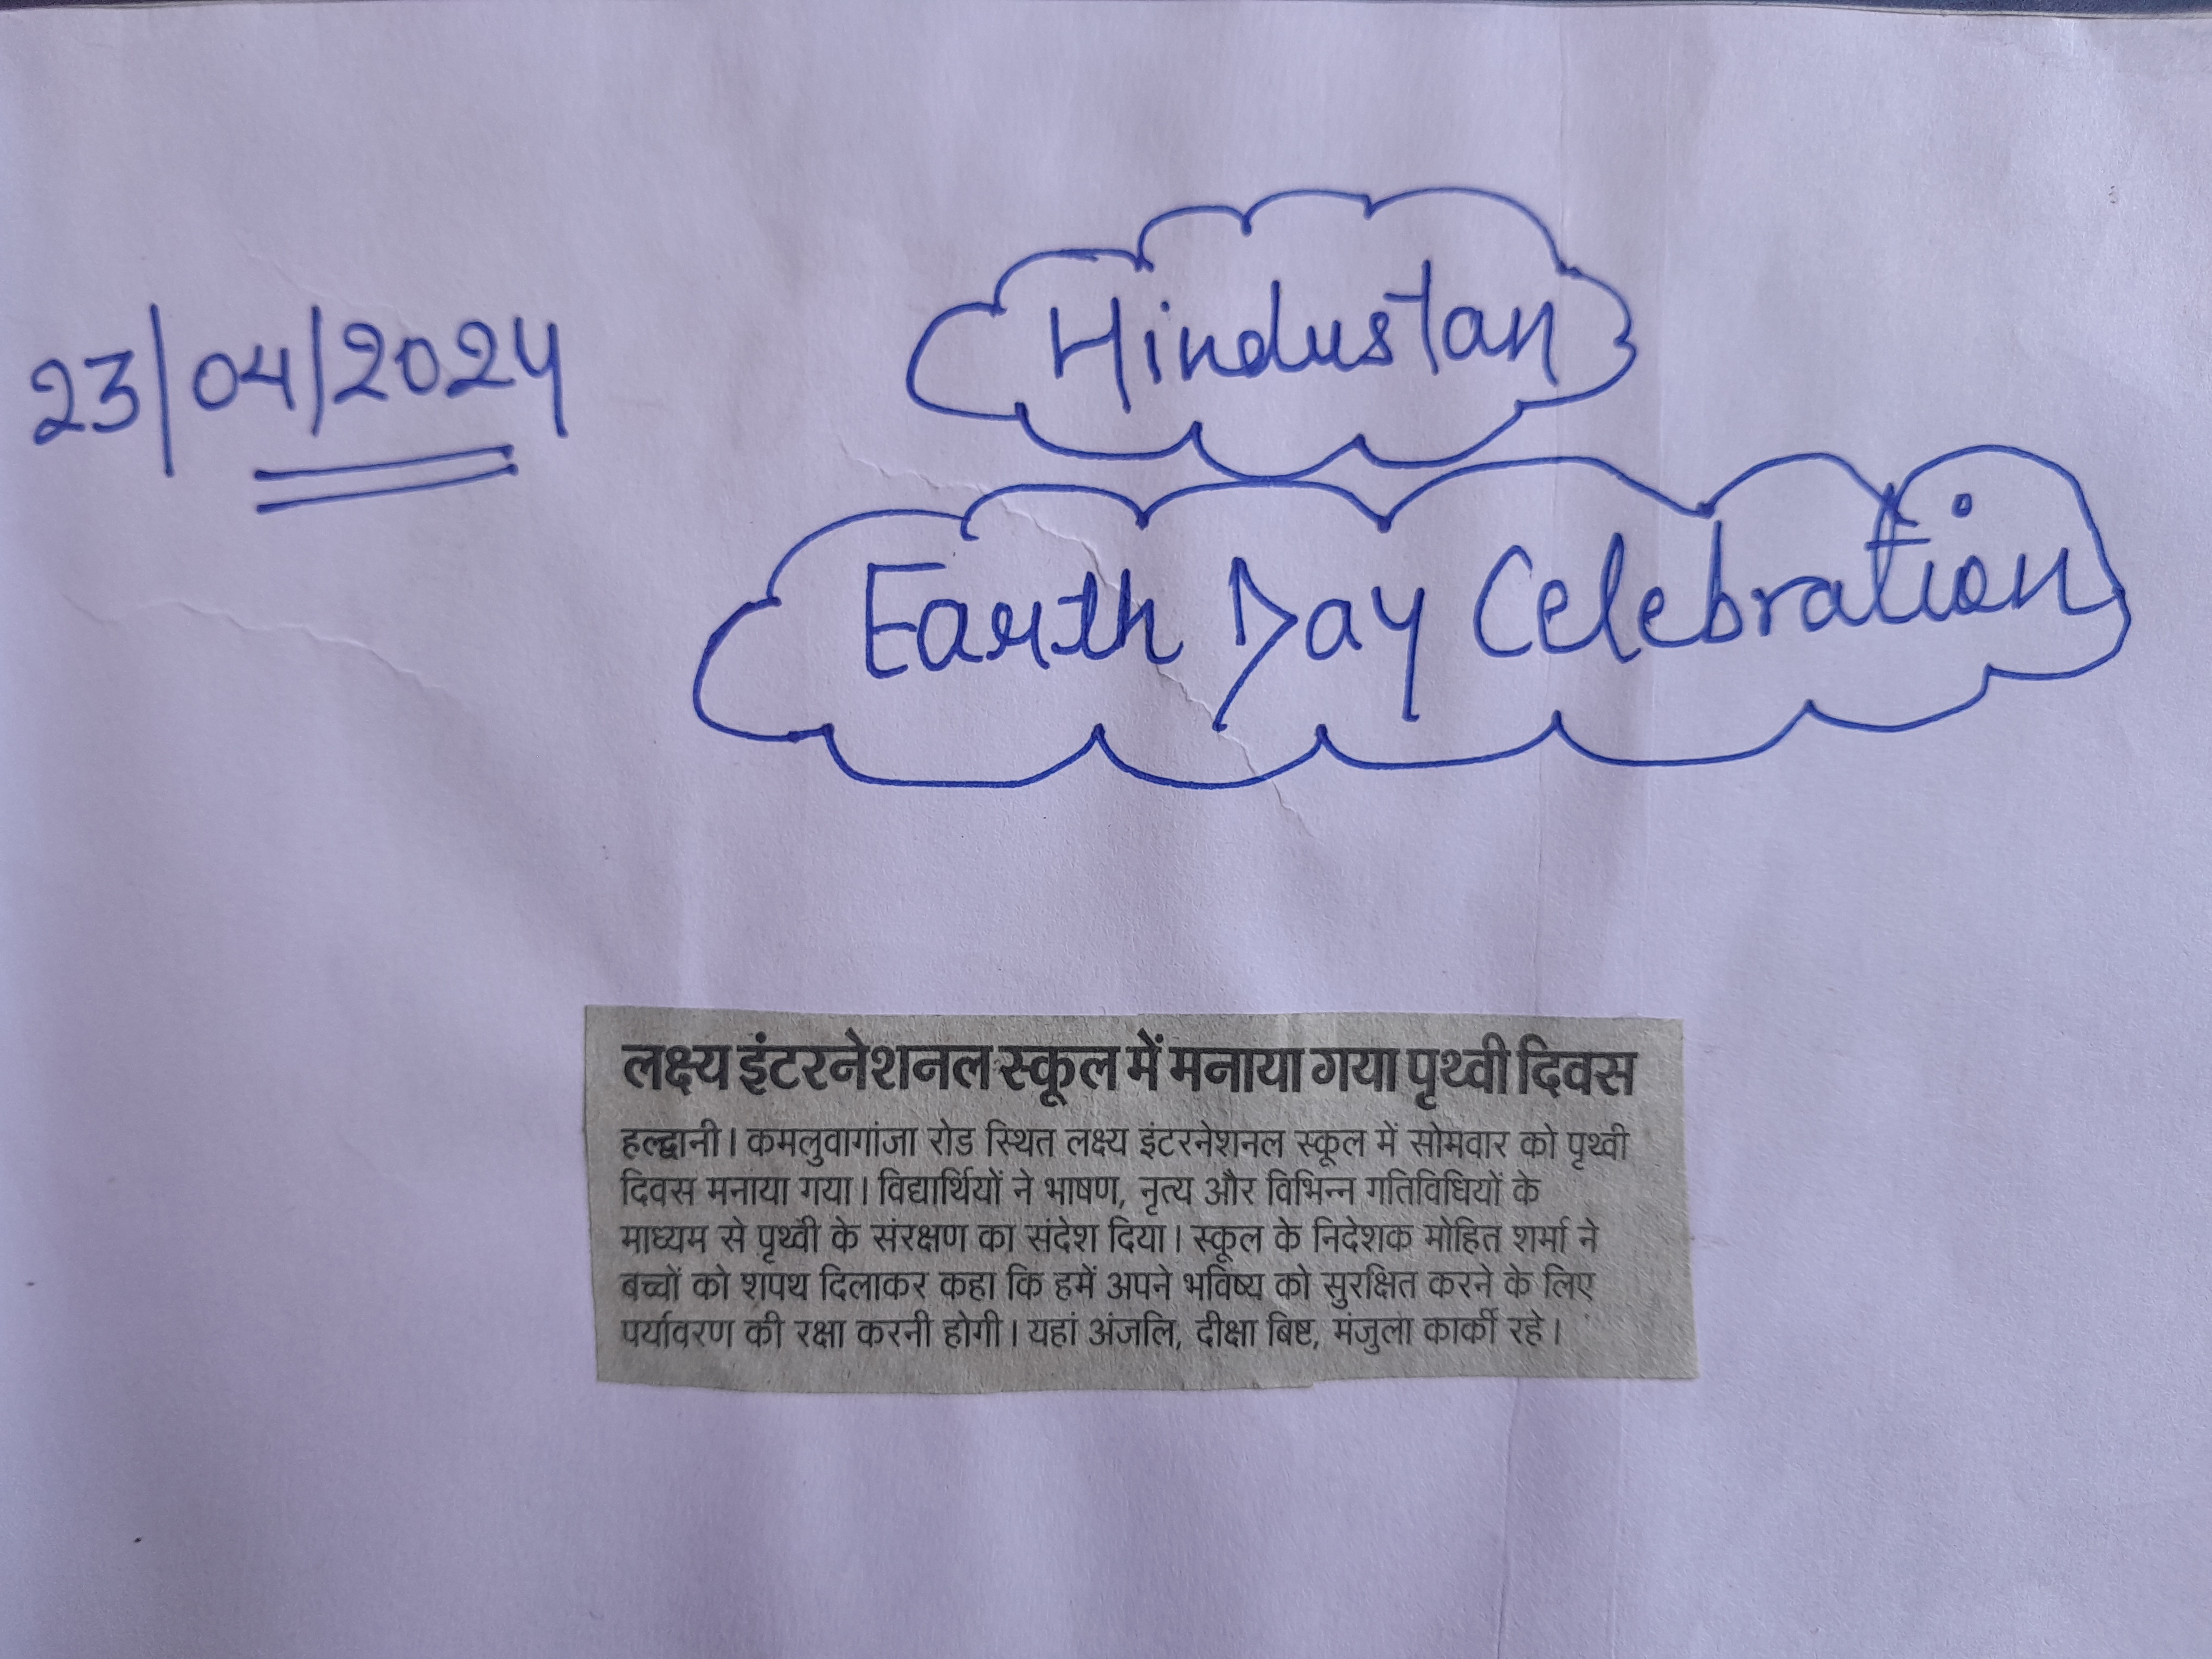 23/04/2024
Hindustan
Earth Day Celebration
लक्ष्य इंटरनेशनल स्कूल में मनाया गया पृथ्वी दिवस
हल्द्वानी। कमलुवागांजा रोड स्थित लक्ष्य इंटरनेशनल स्कूल में सोमवार को पृथ्वी
दिवस मनाया गया। विद्यार्थियों ने भाषण, नृत्य और विभिन्न गतिविधियों के
माध्यम से पृथ्वी के संरक्षण का संदेश दिया। स्कूल के निदेशक मोहित शर्मा ने
बच्चों को शपथ दिलाकर कहा कि हमें अपने भविष्य को सुरक्षित करने के लिए
पर्यावरण की रक्षा करनी होगी। यहां अंजलि, दीक्षा बिष्ट, मंजुला कार्की रहे।